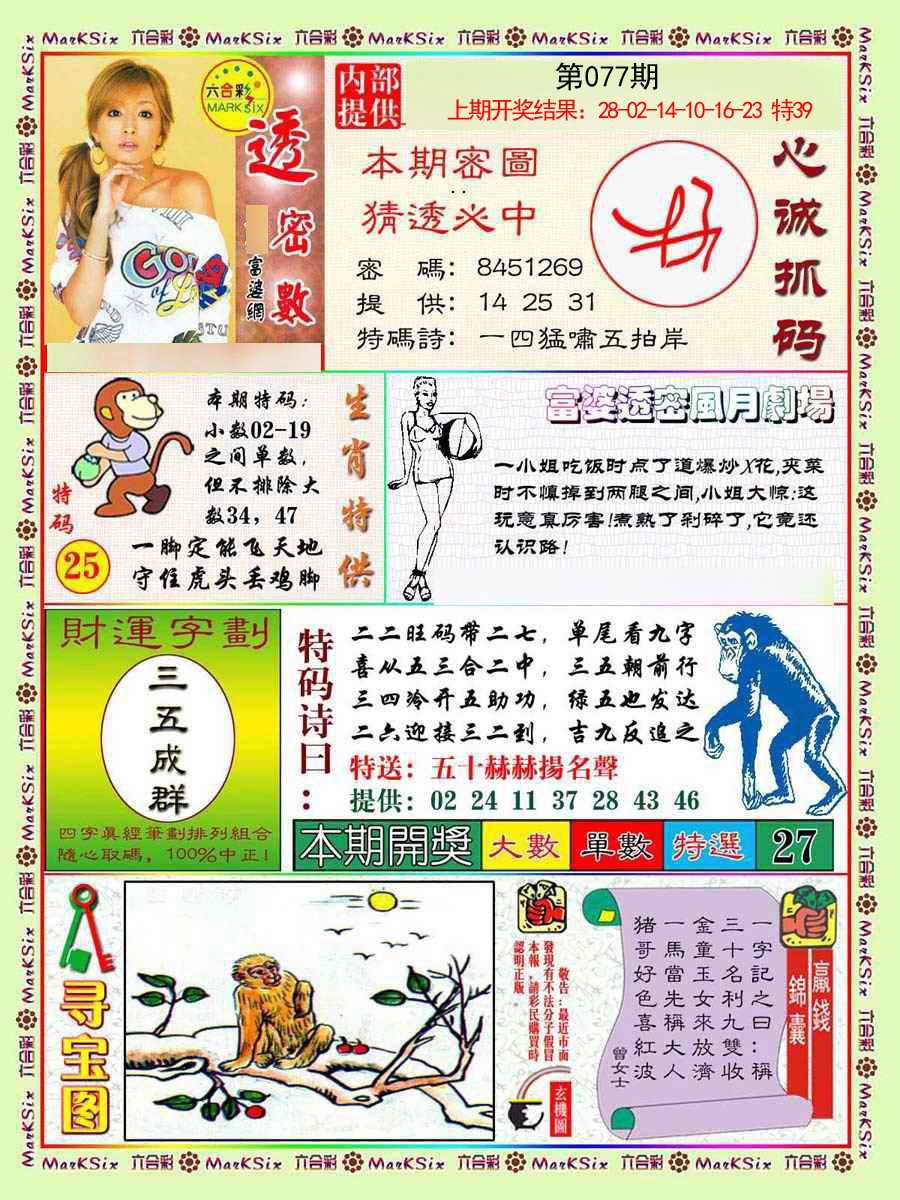 MarKSix 六合彩 MarKSix 六合彩 MarKSix 六合彩 MarKSix 六合彩 MarKSix 六合彩
六合彩
MARK SIX
透密數
富婆網
内部
提供
第077期
上期开奖结果：28-02-14-10-16-23 特39
本期密圖
猜透必中
密 碼：8451269
提 供：14 25 31
特碼詩：一四猛嘯五拍岸
心诚抓码
特码
25
本期特码：
小数02-19
之间单数，
但不排除大
数34，47
一脚定能飞天地
守住虎头丢鸡脚
生肖特供
富婆透密風月劇場
一小姐吃饭时点了道爆炒X花,夹菜
时不慎掉到两腿之间,小姐大惊:这
玩意真厉害!煮熟了剁碎了,它竟还
认识路!
財運字劃
三五成群
四字眞經筆劃排列組合
隨心取碼，100%中正!
特码诗曰：
二二旺码带二七，单尾看九字
喜从五三合二中，三五朝前行
三四冷开五助功，绿五也发达
二六迎接三二到，吉九反追之
特送：五十赫赫揚名聲
提供：02 24 11 37 28 43 46
本期開獎 大數 單數 特選 27
寻宝图
敬告:最近市面
發現有不法分子假冒
本報,請彩民購買時
認明正版。
玄機圖
贏錢
錦囊
一字記之曰：稱
三十名利九雙收
金童玉女來放濟
一馬當先稱大人
猪哥好色喜紅波
曾女士
MarKSix 六合彩 MarKSix 六合彩 MarKSix 六合彩 MarKSix 六合彩 MarKSix 六合彩